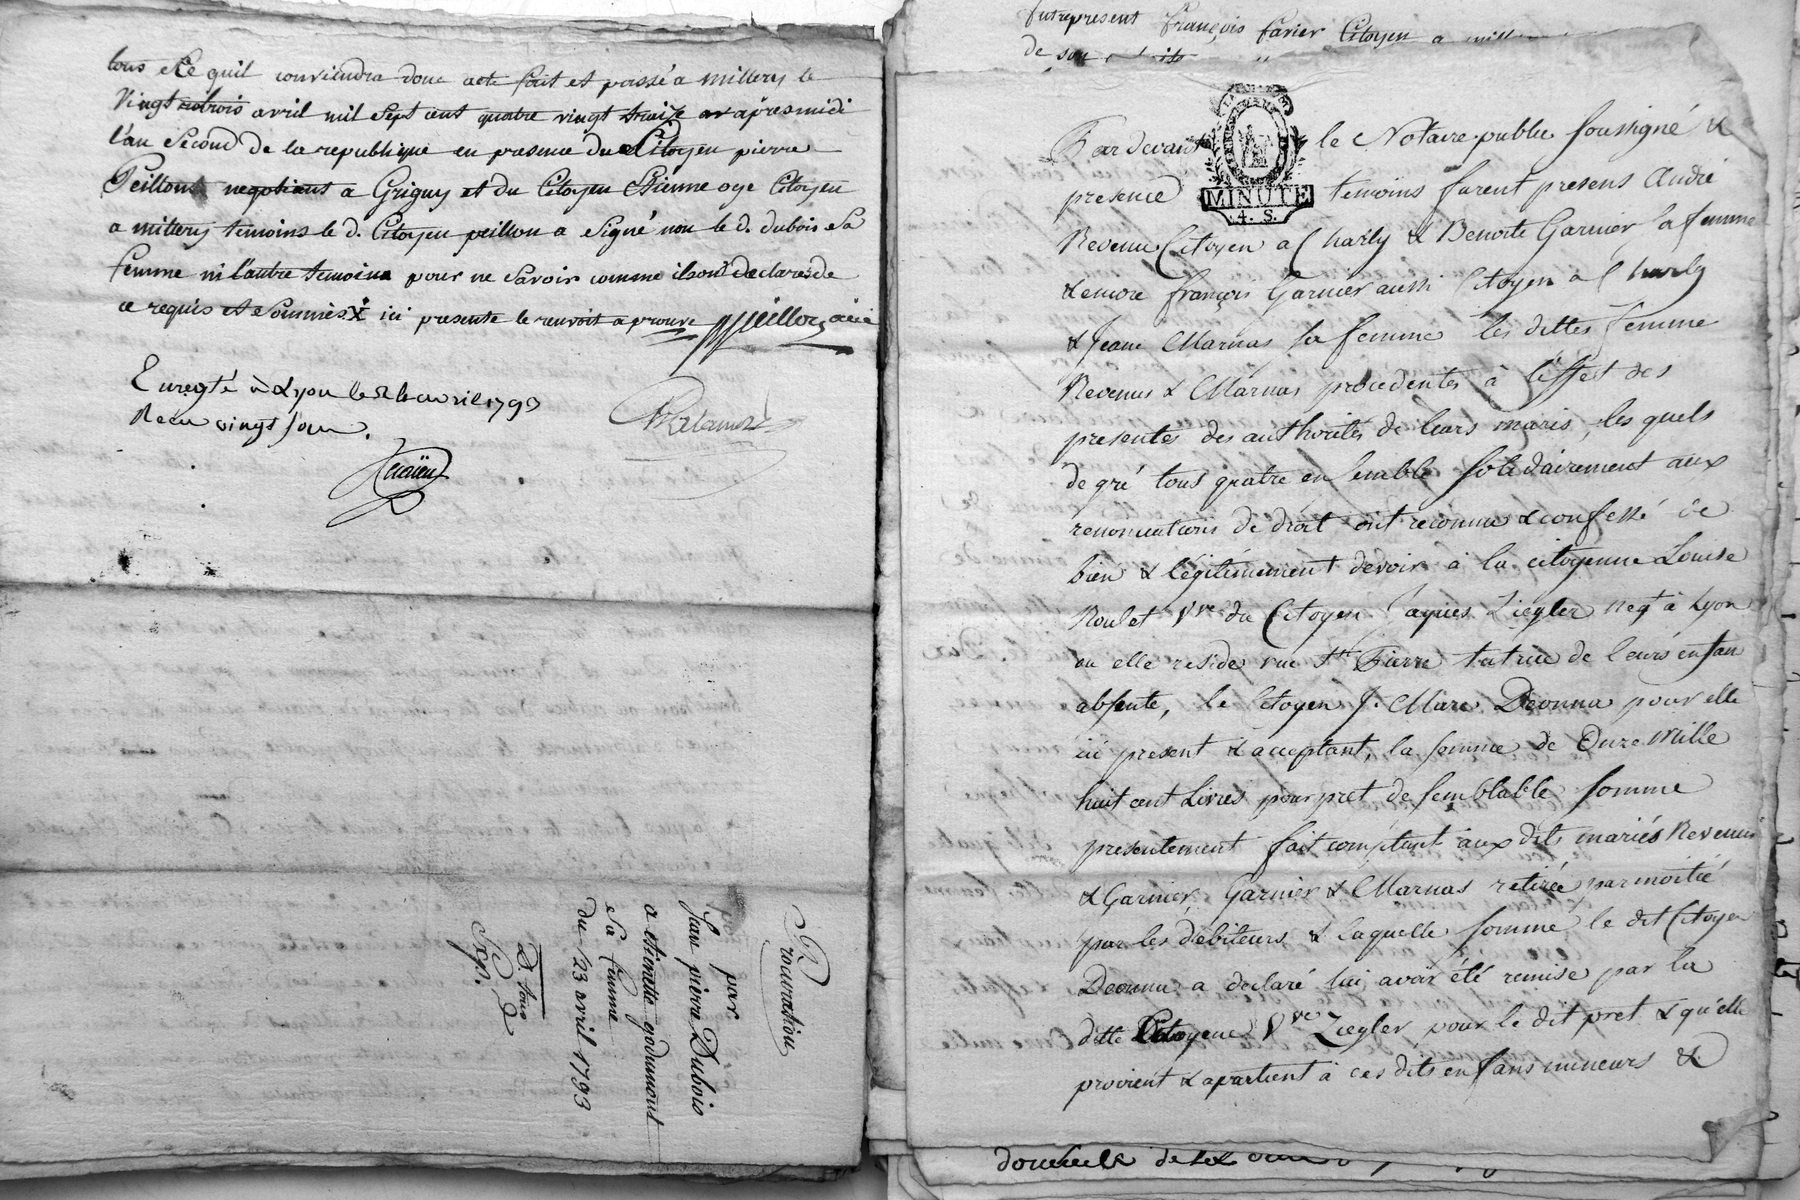 tous ce quil conviendra donc acte fait et passé a millery le
vingt trois avril mil sept cent quatre vingt treize apresmidi
l'an second de la republique en presence du Citoyen pierre
Peillon negotiant a Grigny et du Citoyen Etienne oge Citoyen
a millery temoins le d. Citoyen peillon a signé non le d. dubois sa
femme ni l'autre temoin pour ne savoir comme ils ont declares de
ce requis et sommés X ici presente le renvoit aprouvé
Enregté à Lyon le avril 1793
Recu vingt sous.
Procuration
par
Jean pierre Dubois
a etiennette godumont
sa femme
du 23 avril 1793
françois Citoyen a
de son
Par devant le Notaire public soussigné &
presence temoins furent presens André
Revenu Citoyen a Charly & Benoite Garnier sa femme
& encore françois Garnier aussi Citoyen a Charly
& Jeane Marnas sa femme les dittes femme
Revenus & Marnas procedentes à l'effet des
presentes des authorités de leurs maris, les quels
de gré tous quatre ensemble solidairement aux
renonciations de droit ont reconnu & confessé de
bien & légitimement devoir à la citoyenne Louise
Roulet Vve du Citoyen Jaques Ziegler negt à Lyon
ou elle reside rue St Pierre tutrice de leurs enfan
absente, le Citoyen J. Marc Deonna pour elle
ici present & acceptant, la somme de Onze Mille
huit cent Livres pour pret de semblable somme
presentement fait comptant aux dits mariés Revenus
& Garnier, Garnier & Marnas retirée par moitié
par les débiteurs & laquelle somme le dit Citoyen
Deonna a declaré lui avoir été remise par la
ditte Citoyene Vve Ziegler pour le dit pret & qu'elle
provient & apartient à ces dits enfans mineurs &